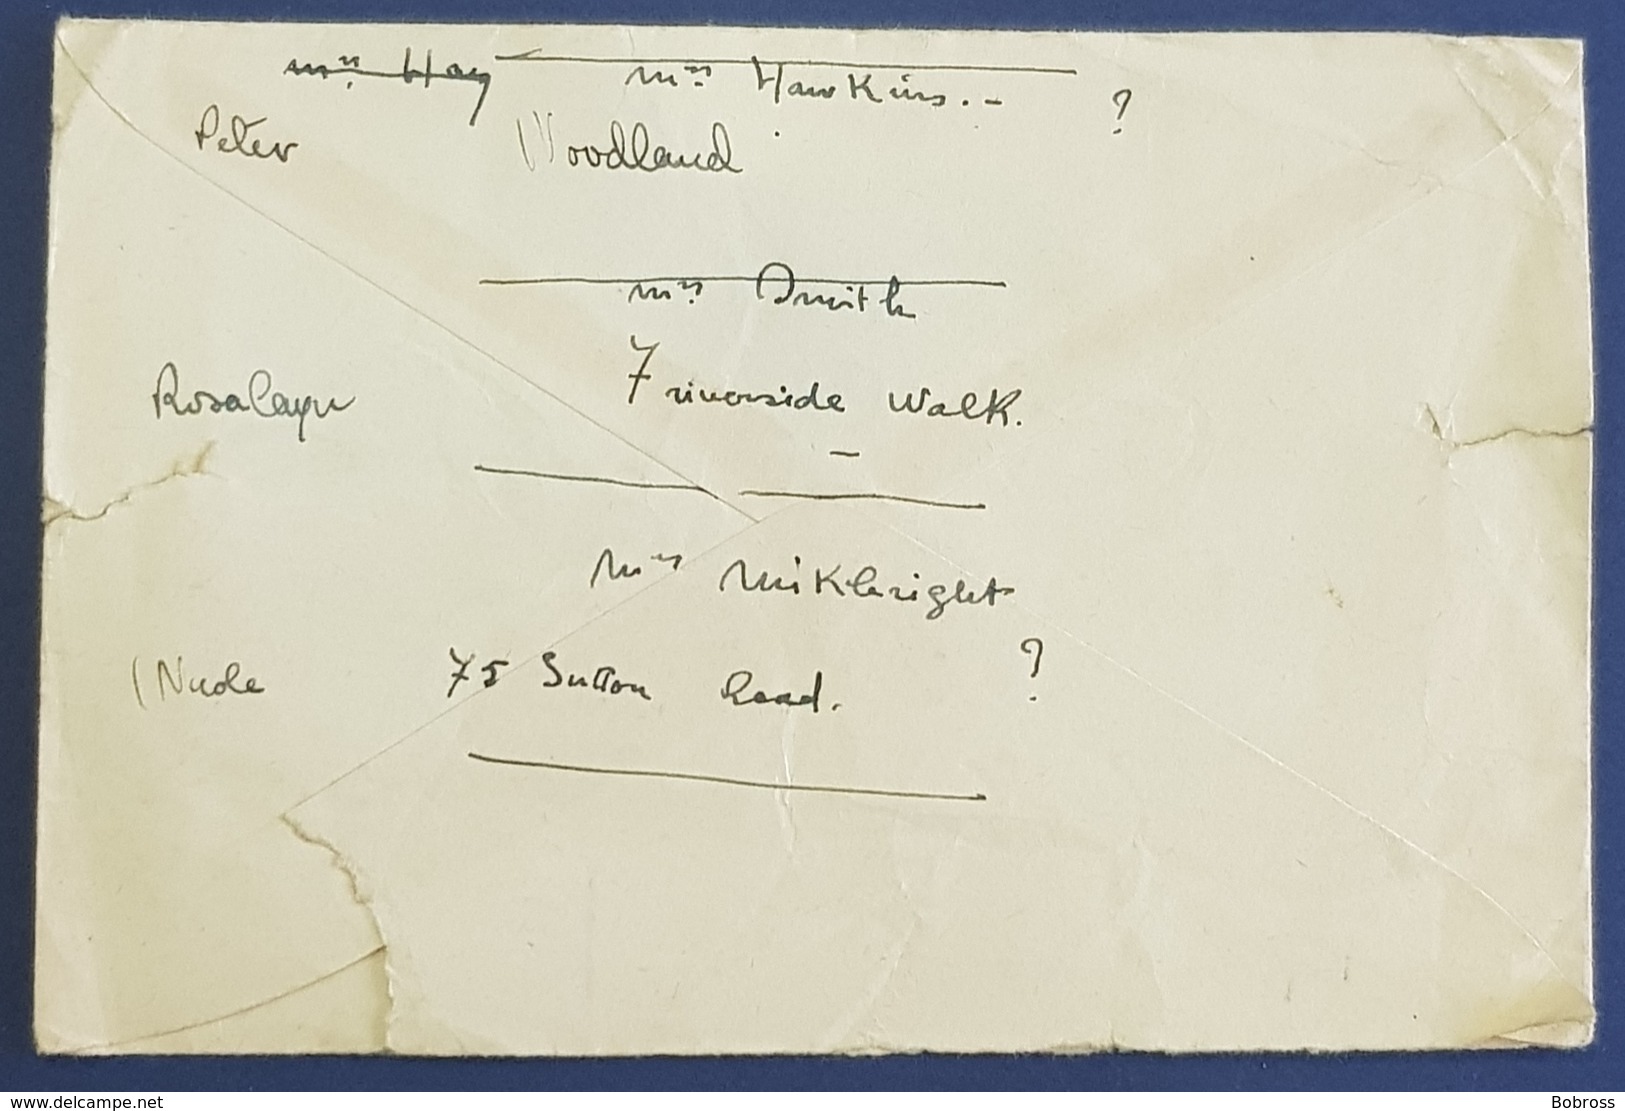 Mrs Hay Mrs Hawkins. - ?
Peter Woodland
Mrs Smith
Rosaleyn 7 riverside Walk.
Mrs
Nude 75 Sutton Road. ?
www.delcampe.net Bobross